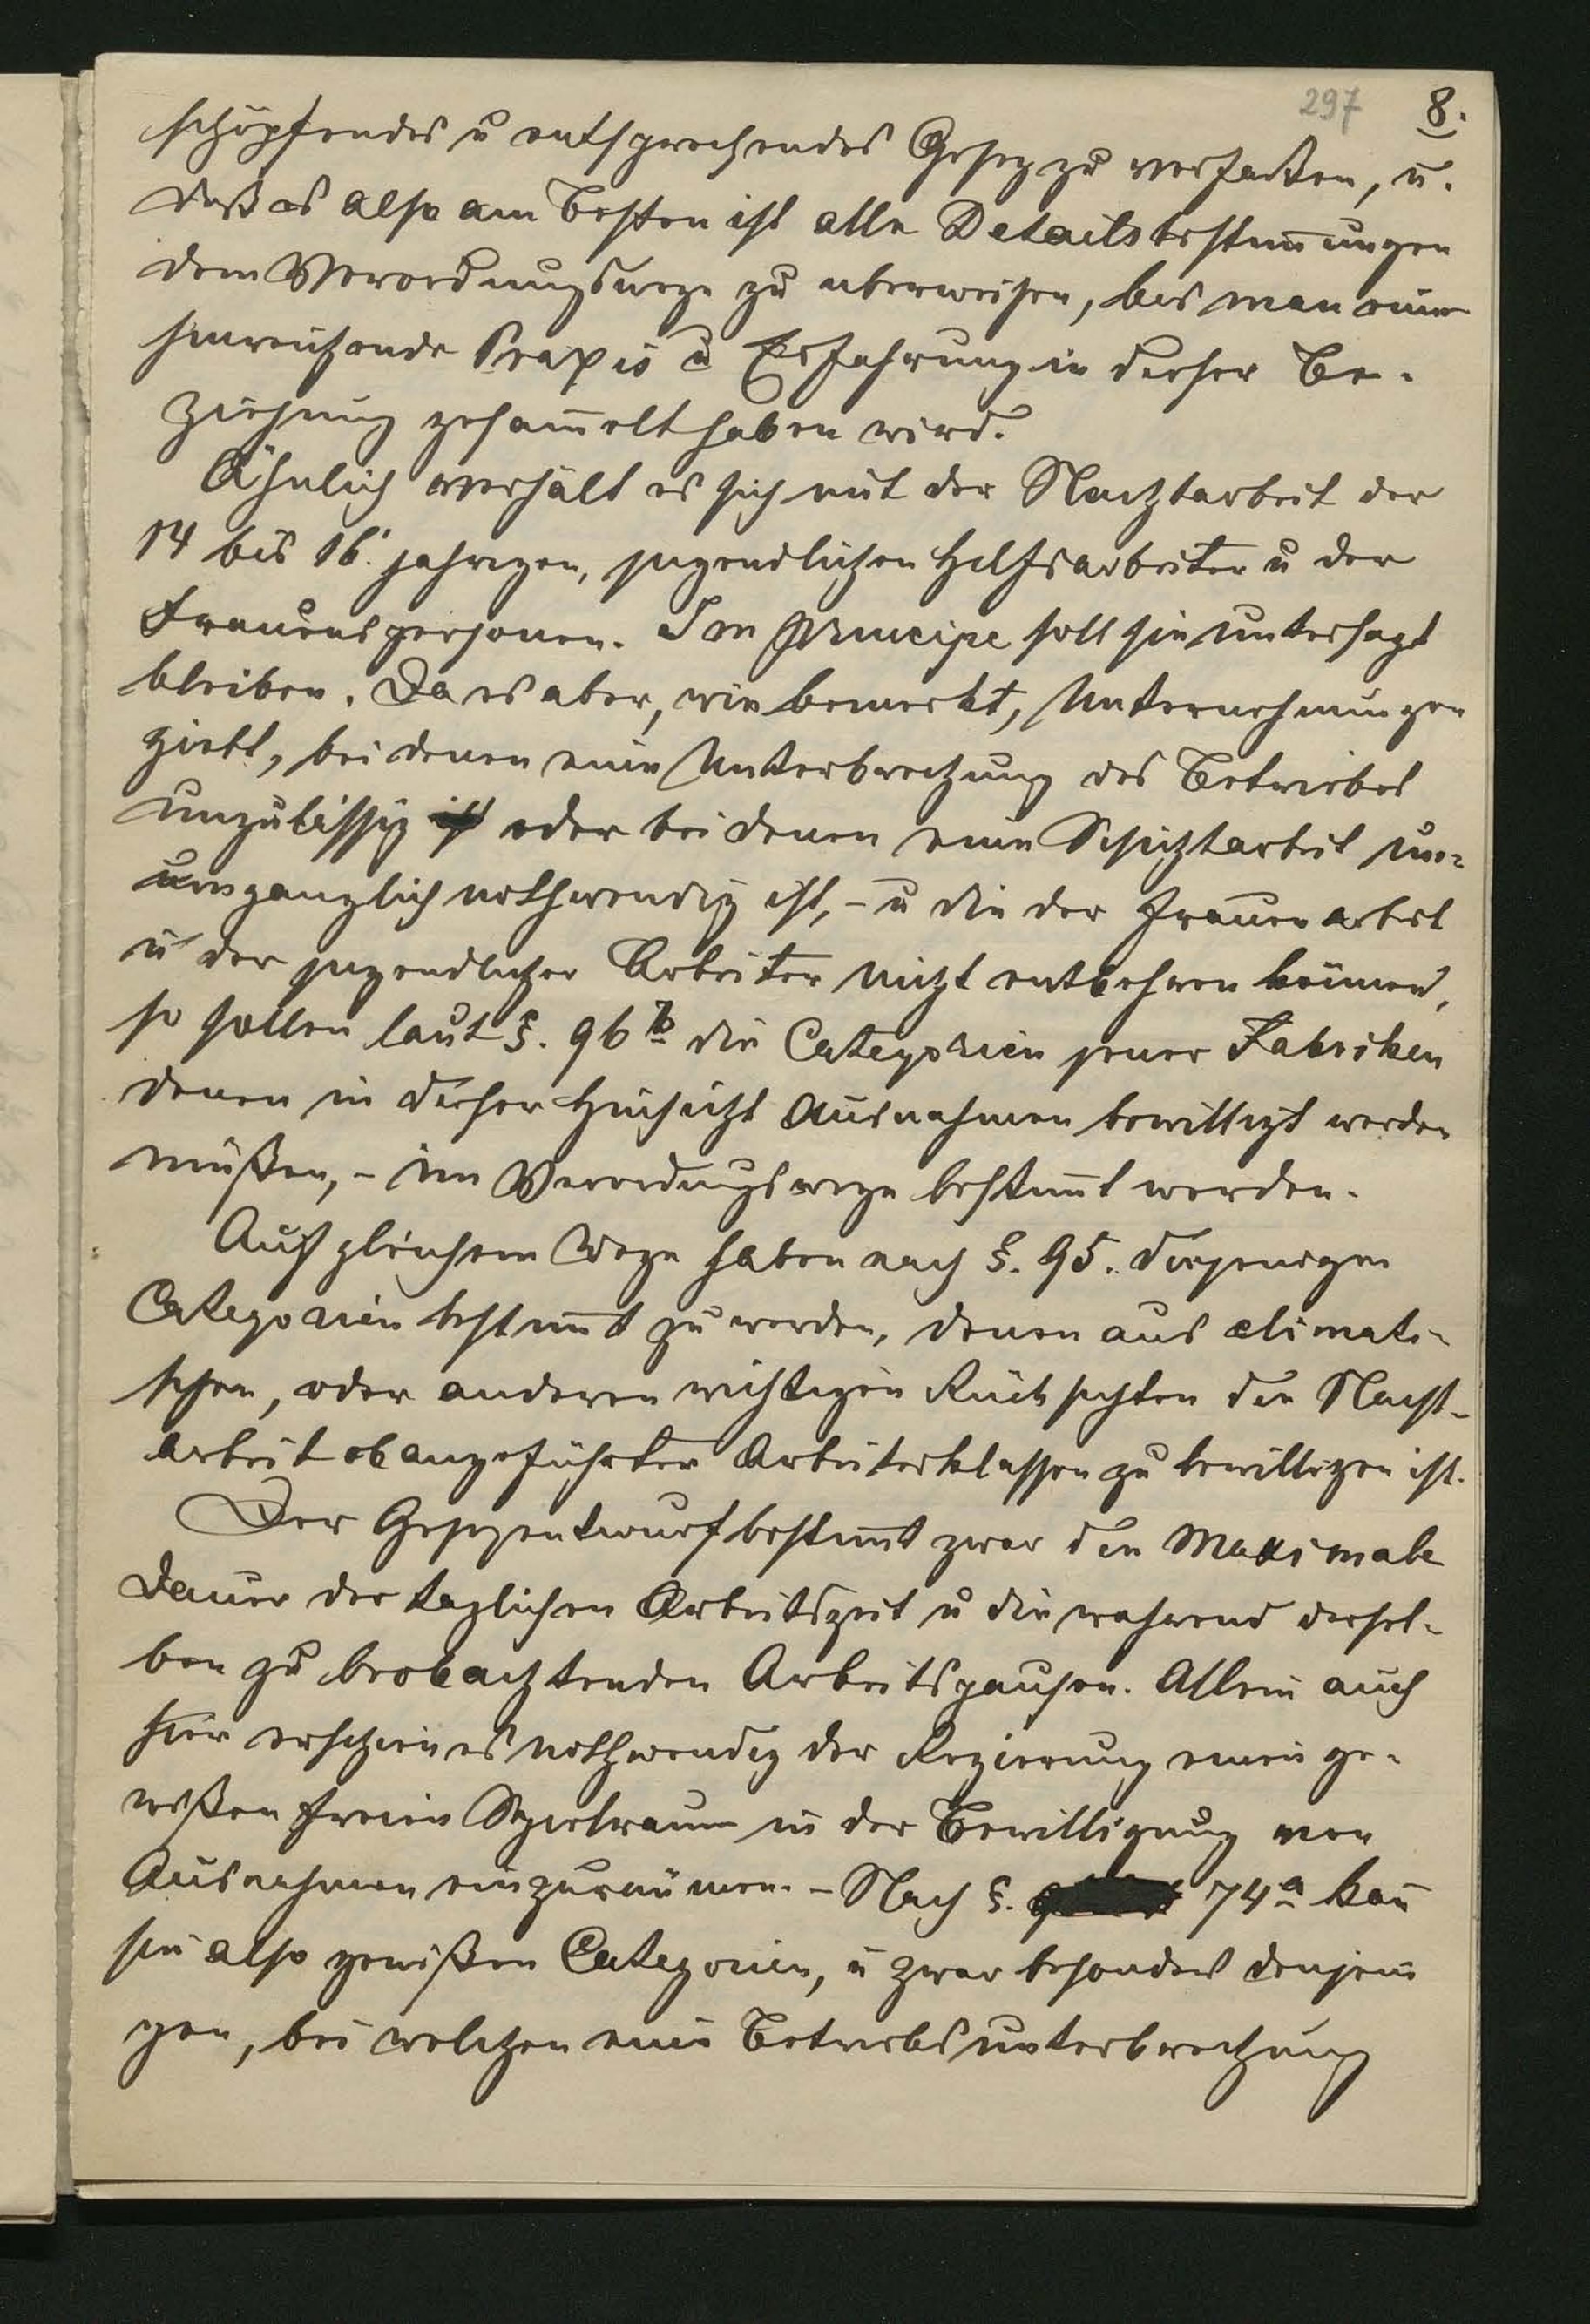 297 8.
schöpfendes u entsprechendes Gesez zu verfaßen, u.
daß es also am Besten ist alle Detailsbestim̄ungen
dem Verordnungswege zu uberweisen, bis man eine
hinreichende Praxis u Erfahrung in dieser Be-
ziehung gesam̄elt haben wird.
Ähnlich verhält es sich mit der Nachtarbeit der
14 bis 16. jahrigen, jugendlichen Hilfsarbeiter u der
Frauenspersonen. Im Principe soll sie untersagt
bleiben. Da es aber, wie bemerkt, Unternehmungen
giebt, bei denen eine Unterbrechung des Betriebes
unzulässig ist oder bei denen eine Schichtarbeit un-
umganglich nothwendig ist, - u die der Frauenarbeit
u der jugendlicher Arbeiter nicht entbehren können,
so sollen laut §. 96 b die Categorien jener Fabriken
denen in dieser Hinsicht Ausnahmen bewilligt werden
müßen, - im Verordungswege bestim̄t werden.
Auf gleichem Wege haben nach §. 95. diejenigen
Categorien bestim̄t zu werden, denen aus climati-
schen, oder anderen wichtigen Rücksichten die Nacht-
arbeit obangeführter Arbeiterklassen zu bewilligen ist.
Der Gesezentwurf bestim̄t zwar die Maximale
Dauer der taglichen Arbeitszeit u die wahrend dersel-
ben zu beobachtenden Arbeitspausen. Allein auch
hier erschien es nothwendig der Regierung einen ge-
wißen freien Spielraum in der Bewilligung von
Ausnahmen einzuräumen. - Nach §. 74 a kan̄
sie also gewißen Categorien, u zwar besonders denjeni
gen, bei welchen eine Betriebsunterbrechung